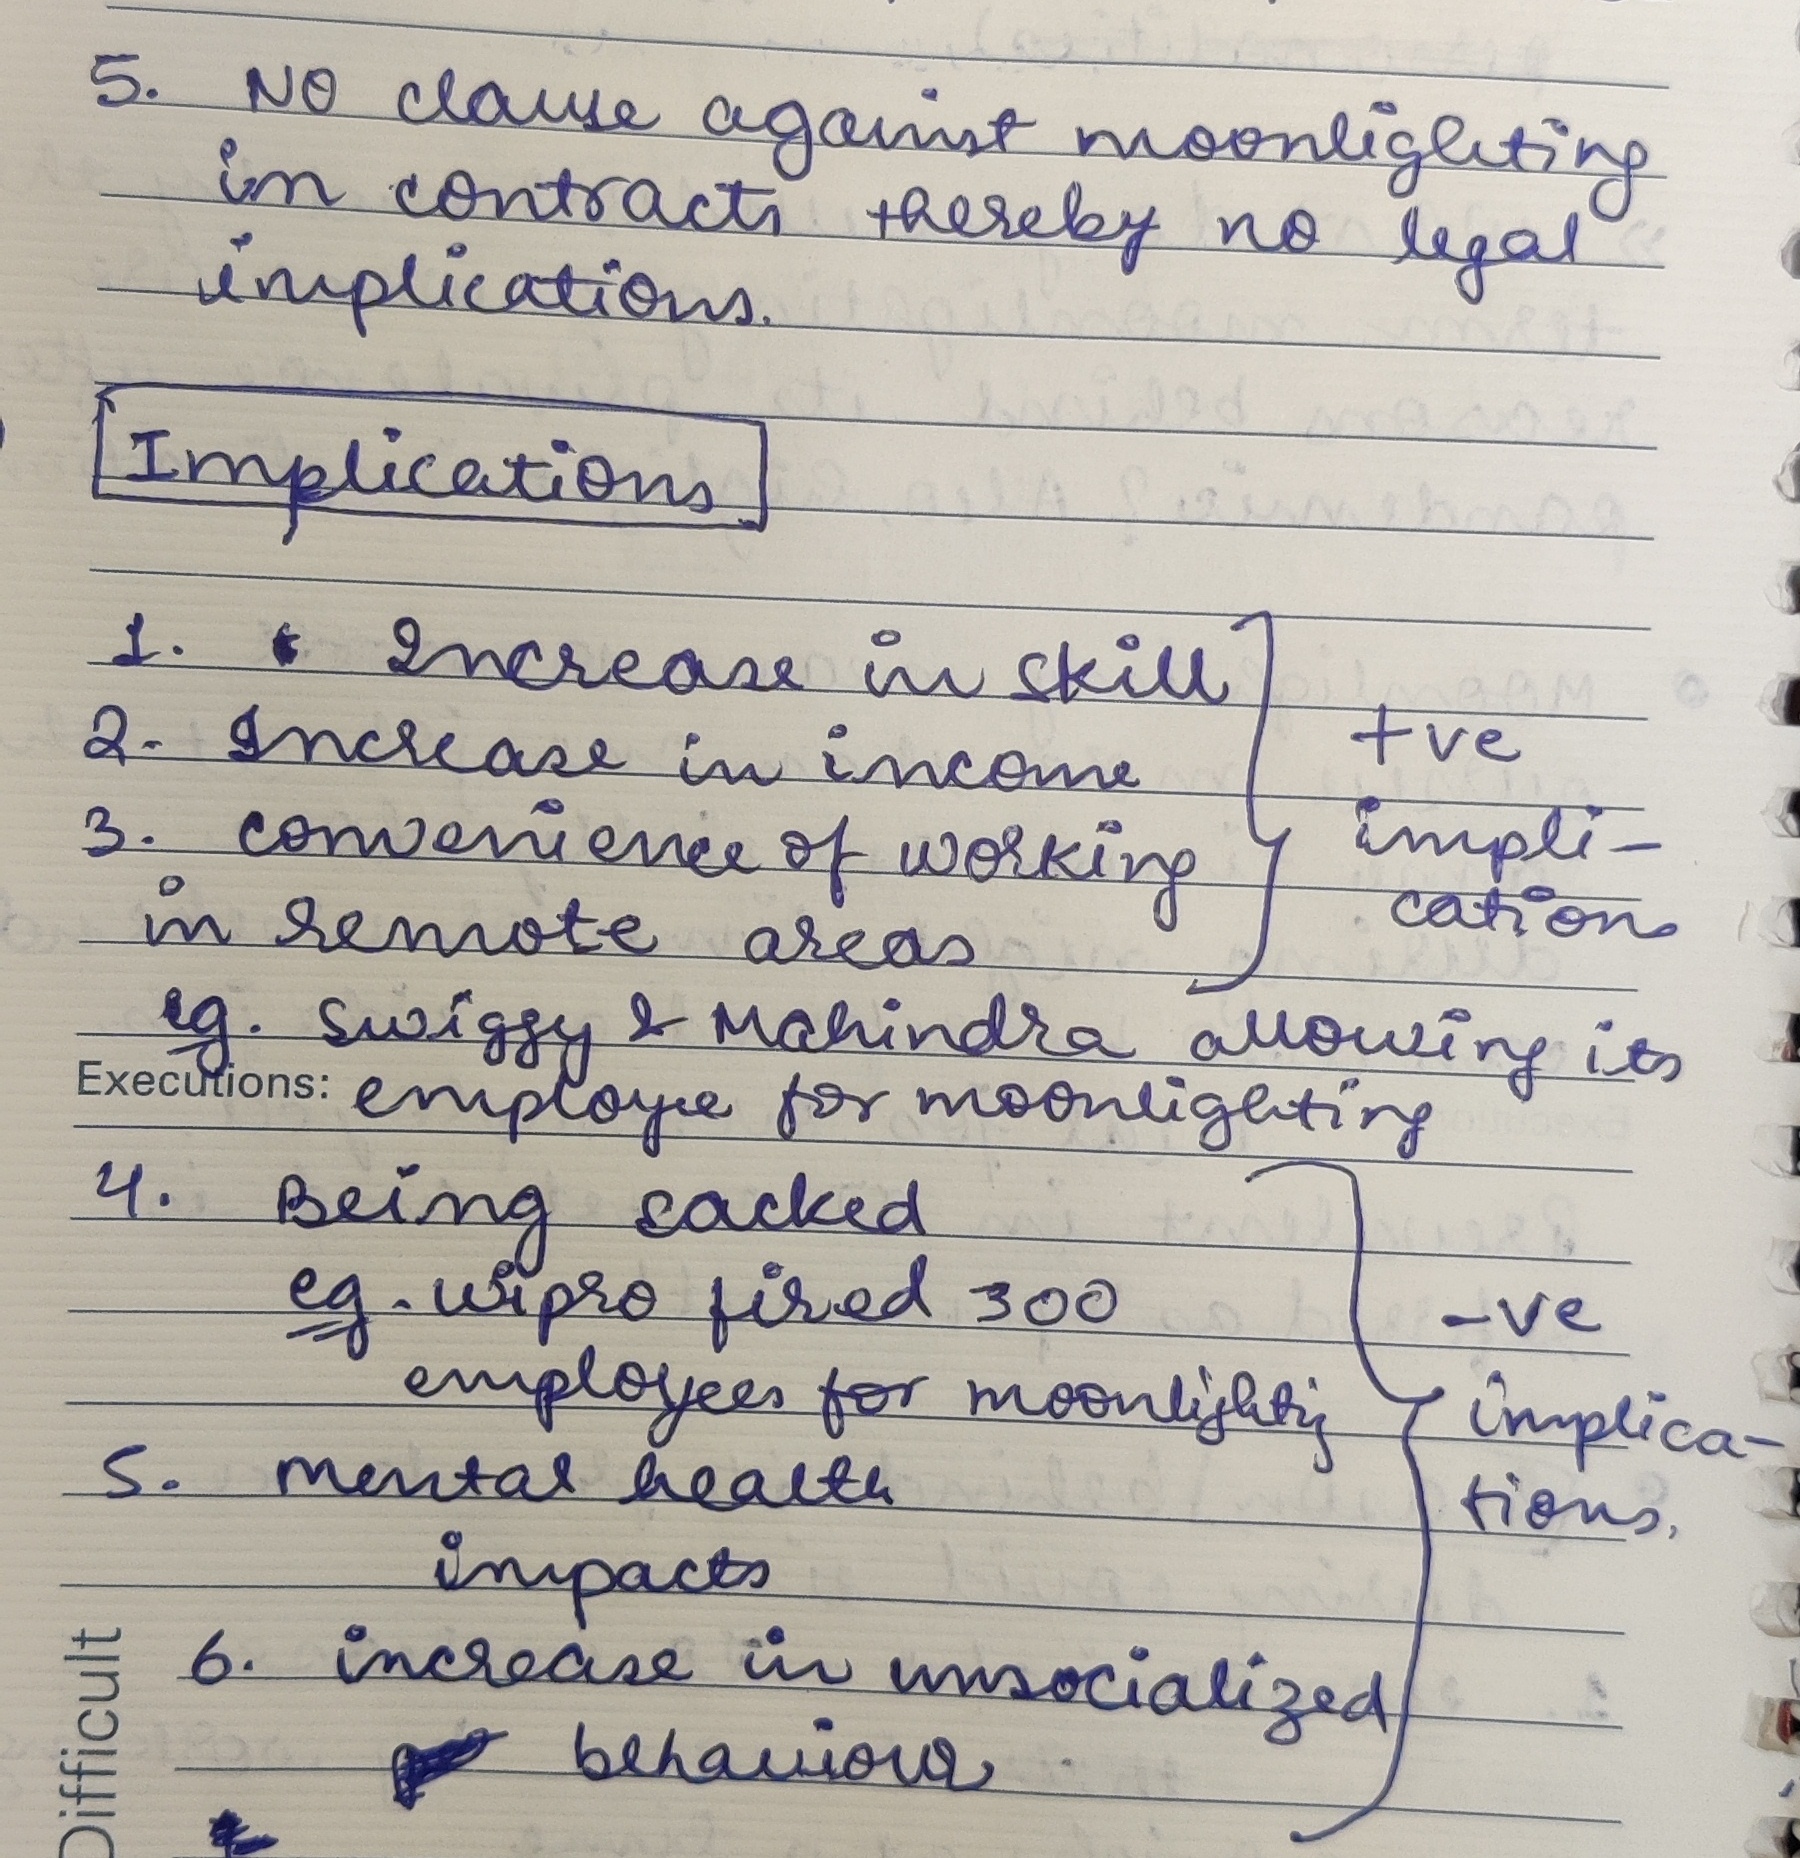 5. NO clause against moonlighting
in contracts thereby no legal
implications.
Implications
1. Increase in skill
2. Increase in income
3. convenience of working
in remote areas
+ve
impli-
cations
eg. Swiggy & Mahindra allowing its
Executions: employee for moonlighting
4. Being sacked
eg. wipro fired 300
employees for moonlightig
5. mental health
impacts
6. increase in unsocialized
behaviour
-ve
implica-
tions.
Difficult